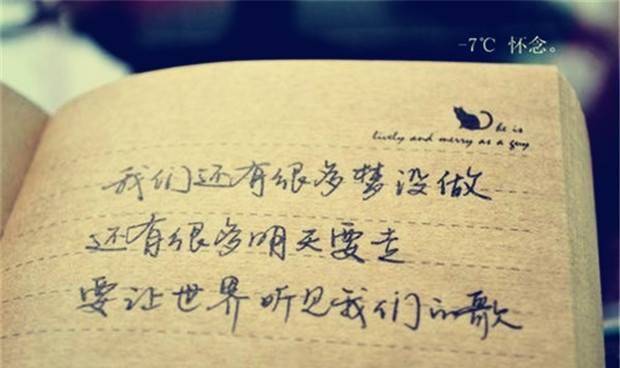 -7℃ 怀念。
he is
lively and merry as a guy
我们还有很多梦没做
还有很多明天要走
要让世界听见我们的歌